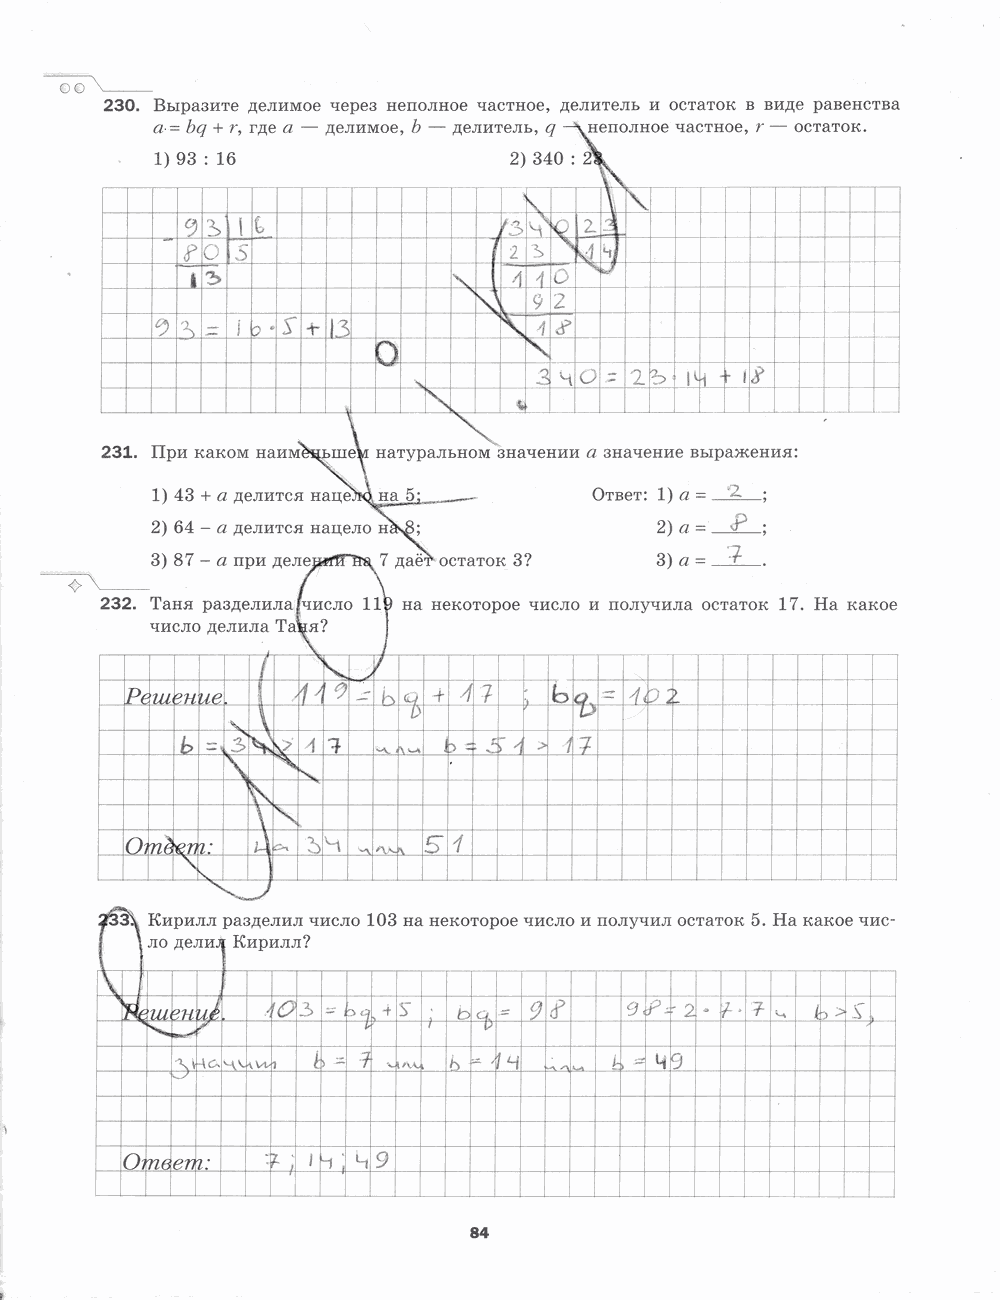 230. Выразите делимое через неполное частное, делитель и остаток в виде равенства
a = bq + r, где a — делимое, b — делитель, q — неполное частное, r — остаток.
1) 93 : 16
2) 340 : 23
93 16
80 5
13
93 = 16 · 5 + 13
340 23
23 14
110
92
18
340 = 23 · 14 + 18
231. При каком наименьшем натуральном значении a значение выражения:
1) 43 + a делится нацело на 5; Ответ: 1) a = 2;
2) 64 – a делится нацело на 8; 2) a = 8;
3) 87 – a при делении на 7 даёт остаток 3? 3) a = 7.
232. Таня разделила число 119 на некоторое число и получила остаток 17. На какое
число делила Таня?
Решение. 119 = bq + 17 ; bq = 102
b = 34 > 17 или b = 51 > 17
Ответ: на 34 или 51
233. Кирилл разделил число 103 на некоторое число и получил остаток 5. На какое чис-
ло делил Кирилл?
Решение. 103 = bq + 5 ; bq = 98 98 = 2 · 7 · 7 и b > 5,
значит b = 7 или b = 14 или b = 49
Ответ: 7 ; 14 ; 49
84